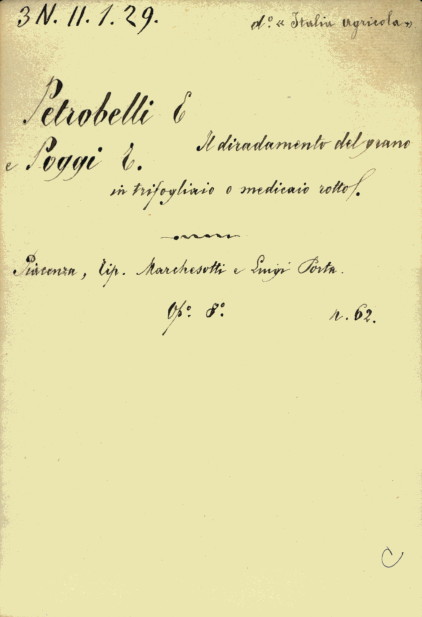 3 N. 11. 1. 29.
d.º « Italia agricola »
Petrobelli E
e Poggi T.
Il diradamento del grano
in trifogliaio o medicaio rotto.
Piacenza, Tip. Marchesotti e Luigi Porta.
Op.º 8.º
r. 62.
C